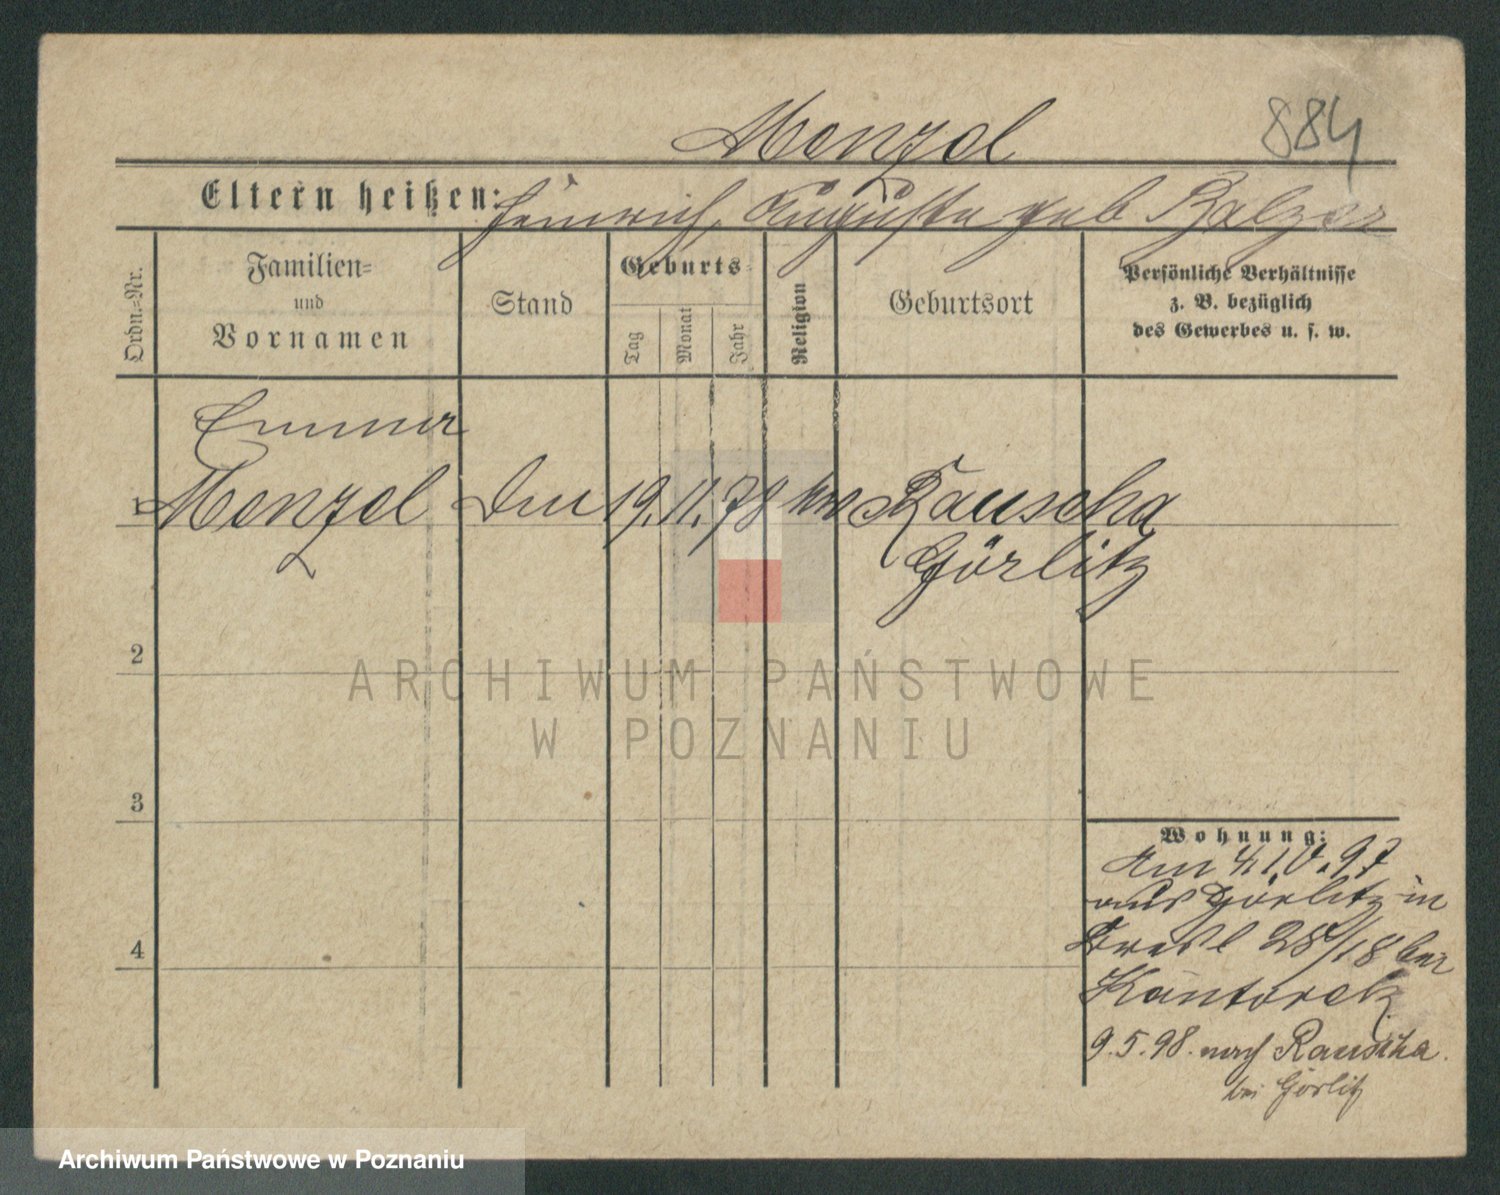 Menzel
884
Eltern heißen: Heinrich, Auguste geb Balzer
Ordn.=Nr.
Familien=
und
Vornamen
Stand
Geburts=
Tag
Monat
Jahr
Religion
Geburtsort
Persönliche Verhältnisse
z. B. bezüglich
des Gewerbes u. s. w.
Emma
1 Menzel 19. 11. 78 Rauscha
Görlitz
2
ARCHIWUM PAŃSTWOWE
W POZNANIU
3
Wohnung:
Am 4.10.97
aus Görlitz in
28/18 bei
Kantorek
4
9.5.98. nach Rauscha.
bei Görlitz
Archiwum Państwowe w Poznaniu